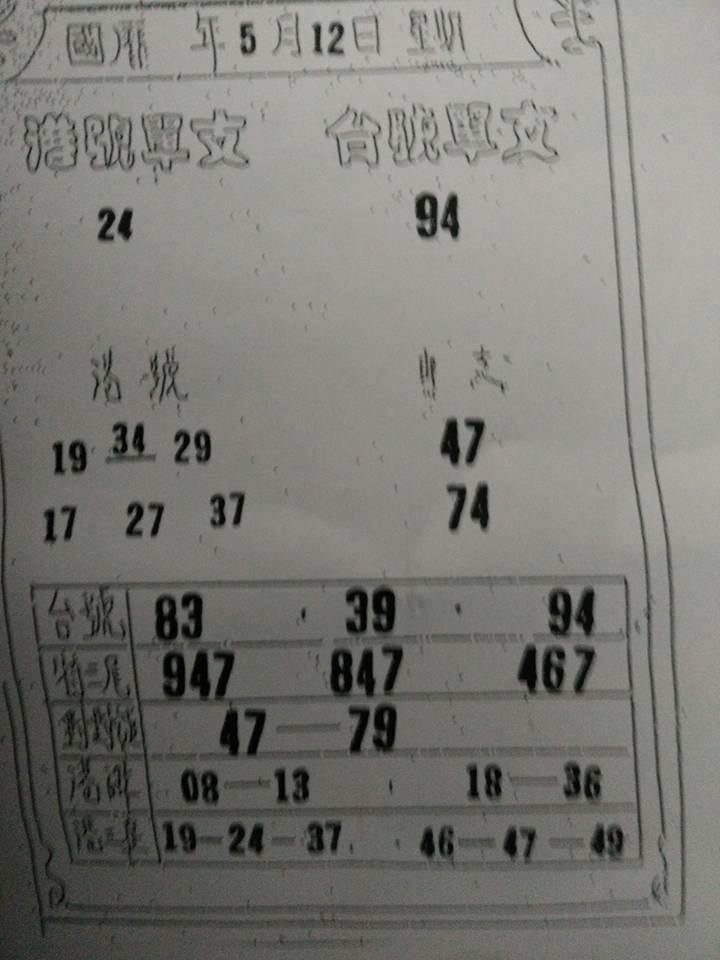 國曆 年5月12日 星期
港號單支 台號單支
24 94
港號 單支
19 34 29 47
17 27 37 74
台號 83 · 39 · 94
特三尾 947 847 467
47—79
港碑 08—13 18—36
港三隼 19—24—37 46—47—49